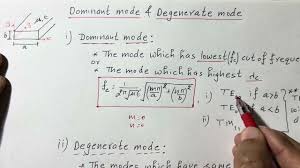 Dominant mode & Degenerate mode
i) Dominant mode:
* The mode which has lowest (fc) cut of freque
or
* The mode which has highest λc
fc = 1/2π√με √(mπ/a)²+(nπ/b)²
TE if a>b
TE if a<b
* TM11
m=0
n=0
ii) Degenerate mode:
* The modes which have same